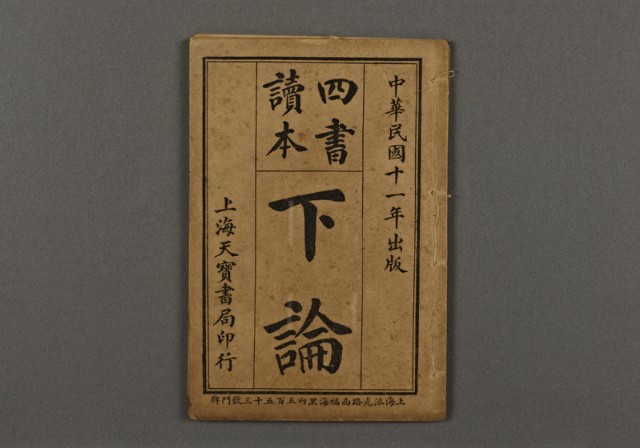 中華民國十一年出版
四書
讀本
下論
上海天寶書局印行
上海派克路西福海里內五百五十三號門牌